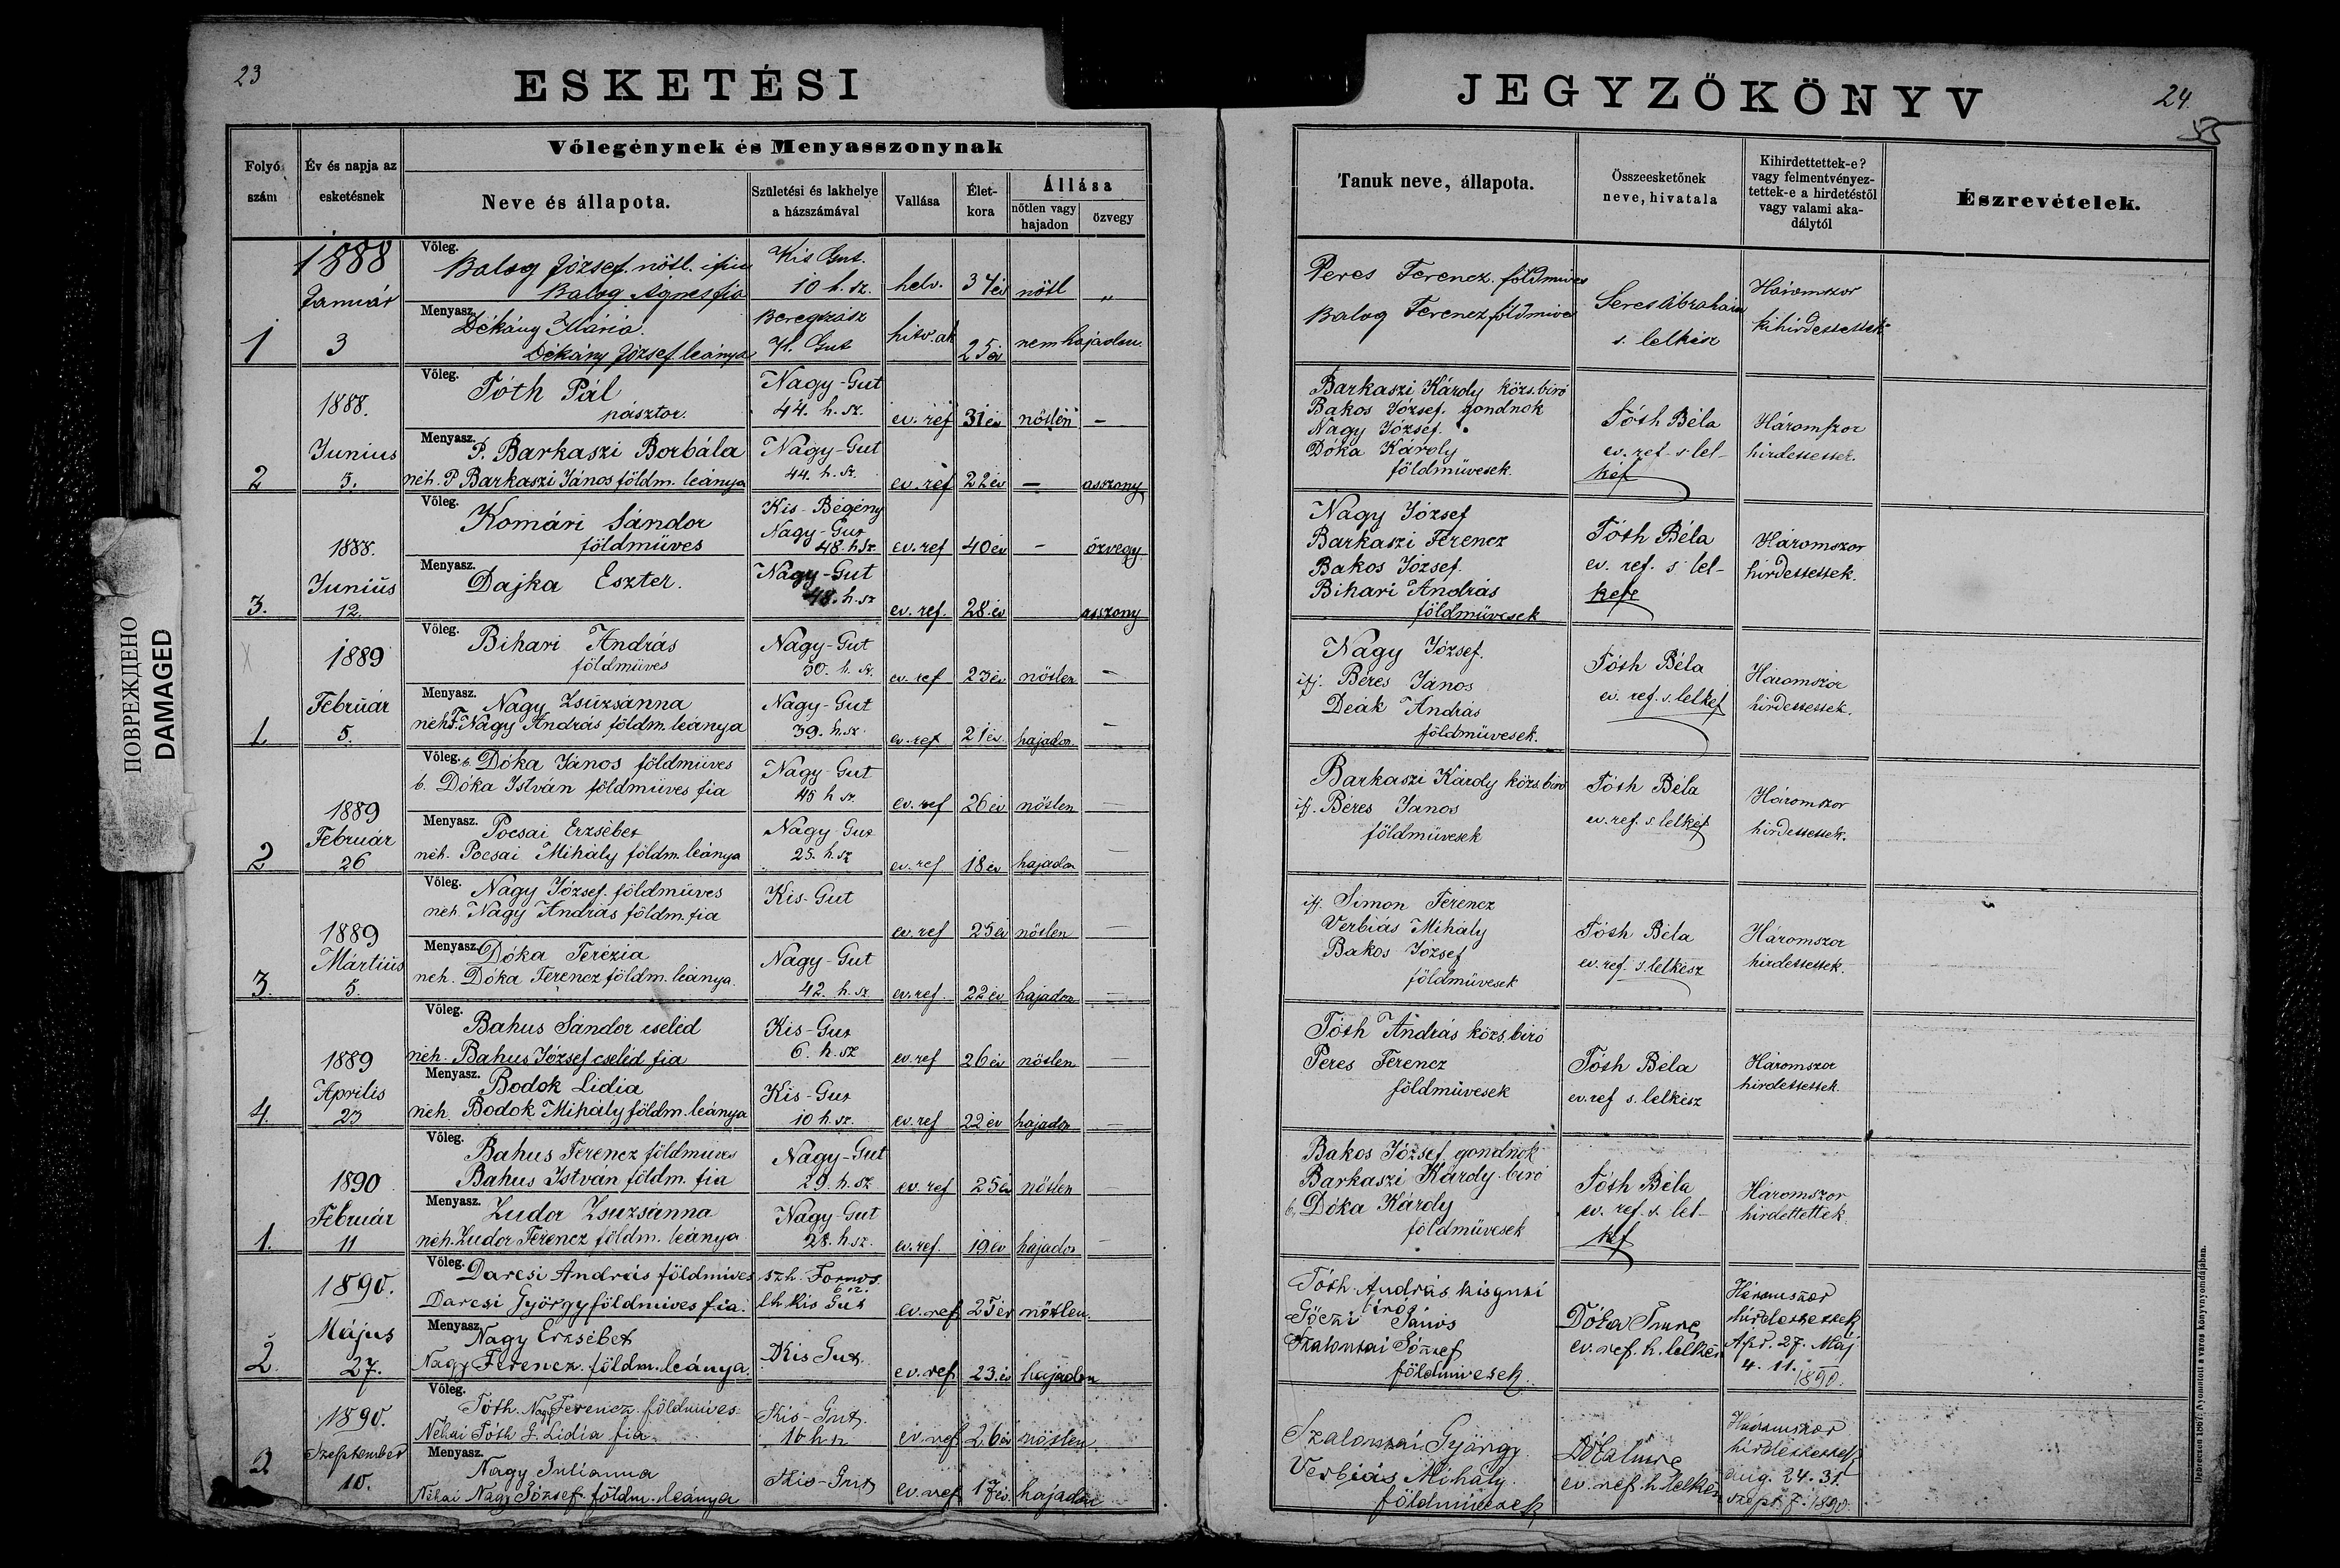 23
ESKETÉSI
JEGYZŐKÖNYV
24.
55
Vőlegénynek és Menyasszonynak
Folyó szám
Év és napja az esketésnek
Neve és állapota.
Születési és lakhelye a házszámával
Vallása
Élet-kora
Állása
nőtlen vagy hajadon
özvegy
Tanuk neve, állapota.
Összeesketőnek neve, hivatala
Kihirdettettek-e? vagy felmentvényez-tettek-e a hirdetéstől vagy valami aka-dálytól
Észrevételek.
1
1888
Január
3
Vőleg.
Balog József. nőtl.
Balog Ágnes fia
Kis Gut.
10 h. sz.
helv.
34 év
nőtl
„
Menyasz.
Dékány Mária.
Dékány József leánya
Beregszász
K. Gut
hitv. ak
25 év
nem hajadon.
Peres Ferencz. földmives
Balog Ferencz földmives
Seres Ábrahám
s. lelkész
Háromszor
kihirdettettek
2
1888.
Junius
5.
Vőleg.
Tóth Pál
pásztor.
Nagy-Gut
44. h. sz.
ev. ref
31 év
nőtlen
-
Menyasz.
P. Barkaszi Borbála
néh. P Barkaszi János földm. leánya
Nagy-Gut
44. h. sz.
ev. ref
22 év
-
asszony
Barkaszi Károly közs. biró
Bakos József. gondnok
Nagy József.
Dóka Károly
földmüvesek.
Tóth Béla
ev. ref. s. lel-
kész
Háromszor
hirdettettek.
3.
1888.
Junius
12.
Vőleg.
Komári Sándor
földmüves
Kis-Bégény
Nagy-Gut
48. h. sz.
ev. ref
40 év
-
özvegy
Menyasz.
Dajka Eszter.
Nagy-Gut
48. h. sz
ev. ref.
28 év
asszony
Nagy József
Barkaszi Ferencz
Bakos József.
Bihari András
földmüvesek
Tóth Béla
ev. ref. s. lel-
kése
Háromszor
hirdettettek.
1
1889
Február
5.
Vőleg.
Bihari András
földmüves
Nagy-Gut
50. h. sz.
ev. ref
23 év
nőtlen
-
Menyasz.
F. Nagy Zsuzsánna
néh. F. Nagy András földm. leánya
Nagy-Gut
39. h. sz.
ev. ref
21 év.
hajadon.
-
Nagy József.
ifj. Béres János
Deák András
földmüvesek.
Tóth Béla
ev. ref. s. lelkész
Háromszor
hirdettettek.
2
1889
Február
26
Vőleg.
b. Dóka János földmüves
b. Dóka István földmüves fia
Nagy-Gut
45 h sz.
ev. ref
26 év
nőtlen
-
Menyasz.
Pocsai Erzsébet
néh. Pocsai Mihály földm. leánya
Nagy-Gut
25. h. sz
ev. ref
18 év
hajadon
-
Barkaszi Károly közs. biró
ifj. Béres János
földmüvesek
Tóth Béla
ev. ref. s. lelkész
Háromszor
hirdettettek.
3.
1889
Mártiús
5.
Vőleg.
Nagy József. földmüves
néh. Nagy András földm. fia
Kis-Gut
ev. ref
25 év
nőtlen
-
Menyasz.
Dóka Terézia
néh. Dóka Ferencz földm. leánya.
Nagy-Gut
42. h. sz.
ev. ref.
22 év
hajadon
-
ifj. Simon Ferencz
Verbiás Mihály
Bakos József
földmüvesek
Tóth Béla
ev. ref. s. lelkész
Háromszor
hirdettettek.
4.
1889
Április
23
Vőleg.
Bahus Sándor cseléd
néh. Bahus József cseléd fia
Kis-Gut
6. h. sz
ev. ref
26 év
nőtlen
-
Menyasz.
Bodok Lidia
néh. Bodok Mihály földm. leánya
Kis-Gut
10 h. sz.
ev. ref
22 év
hajadon
-
Tóth András közs. biró
Peres Ferencz
földmüvesek
Tóth Béla
ev. ref s. lelkész
Háromszor
hirdettettek.
1.
1890
Február
11
Vőleg.
Bahus Ferencz földmüves
Bahus István földm. fia
Nagy-Gut
29. h. sz
ev. ref
25 év
nőtlen
-
Menyasz.
Zudor Zsuzsánna
néh. Zudor Ferencz földm. leánya
Nagy-Gut
28. h. sz.
ev. ref.
19 év
hajadon
-
Bakos József. gondnok
Barkaszi Károly. biró
b. Dóka Károly
földmüvesek
Tóth Béla
ev. ref. s. lel-
kész
Háromszor
hirdettettek.
2.
1890.
Május
27.
Vőleg.
Darcsi András földmives
Darcsi György földmives fia.
szh. Fornos.
lh. Kis Gut
ev. ref
25 év
nőtlen.
Menyasz.
Nagy Erzsébet
Nagy Ferencz. földm. leánya.
Kis Gut.
ev. ref
23. év
hajadon
Tóth András kisguti
biró
Góczi János
Szalontai József
földmivesek.
Dóka Imre
ev. ref. h. lelkész
Háromszor
hirdettettek
Apr. 27. Máj
4. 11.
1890.
1890.
Szeptember
10.
Vőleg.
Tóth Nagy Ferencz földmüves.
Néhai Tóth G. Lidia fia.
Kis-Gut.
16 h sz
ev. ref
26 év
nőtlen.
Menyasz.
Nagy Julianna
Néhai Nagy József földm. leánya
Kis-Gut
ev. ref
17 év.
hajadon
Szalontai György
Verbiás Mihály
földmüvesek
Dóka Imre
ev. ref. h. lelkész
Háromszor
hirdettettek
aug. 24. 31.
szept. 7. 1890.
ПОВРЕЖДЕНО
DAMAGED
Debreczen 1867. Nyomatott a város könyvnyomdájában.